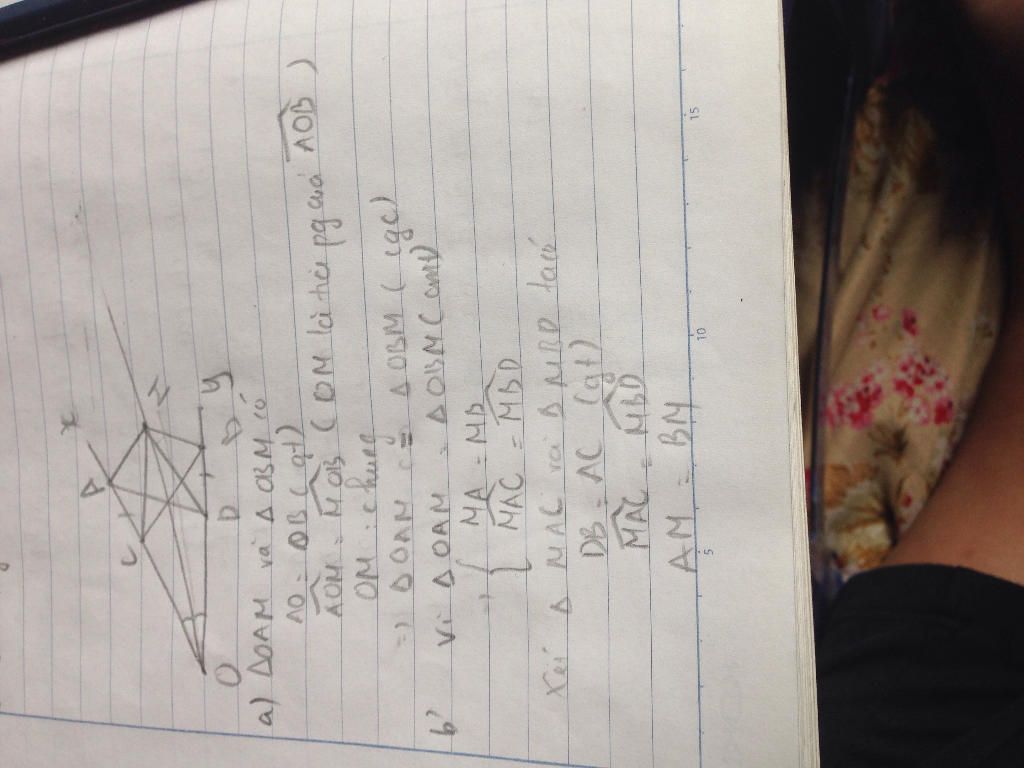 x
A
C
M
O
D
B
y
a) ΔOAM và ΔOBM có
AO = OB (gt)
AOM = MOB (OM là tia pg của AOB)
OM: chung
=> ΔOAM = ΔOBM (cgc)
b) Vì ΔOAM = ΔOBM (cmt)
=> { MA = MB
MAC = MBD
Xét Δ MAC và Δ MBD ta có
DB = AC (gt)
MAC = MBD
AM = BM
5
10
15